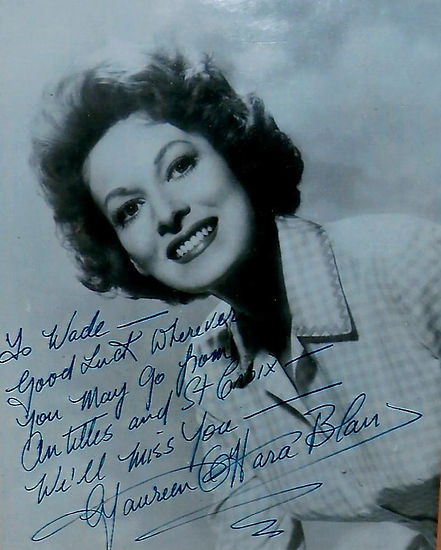 To Wade —
Good Luck Wherever
You May Go from
Antilles and St Croix —
We'll miss you —
Maureen O'Hara Blair